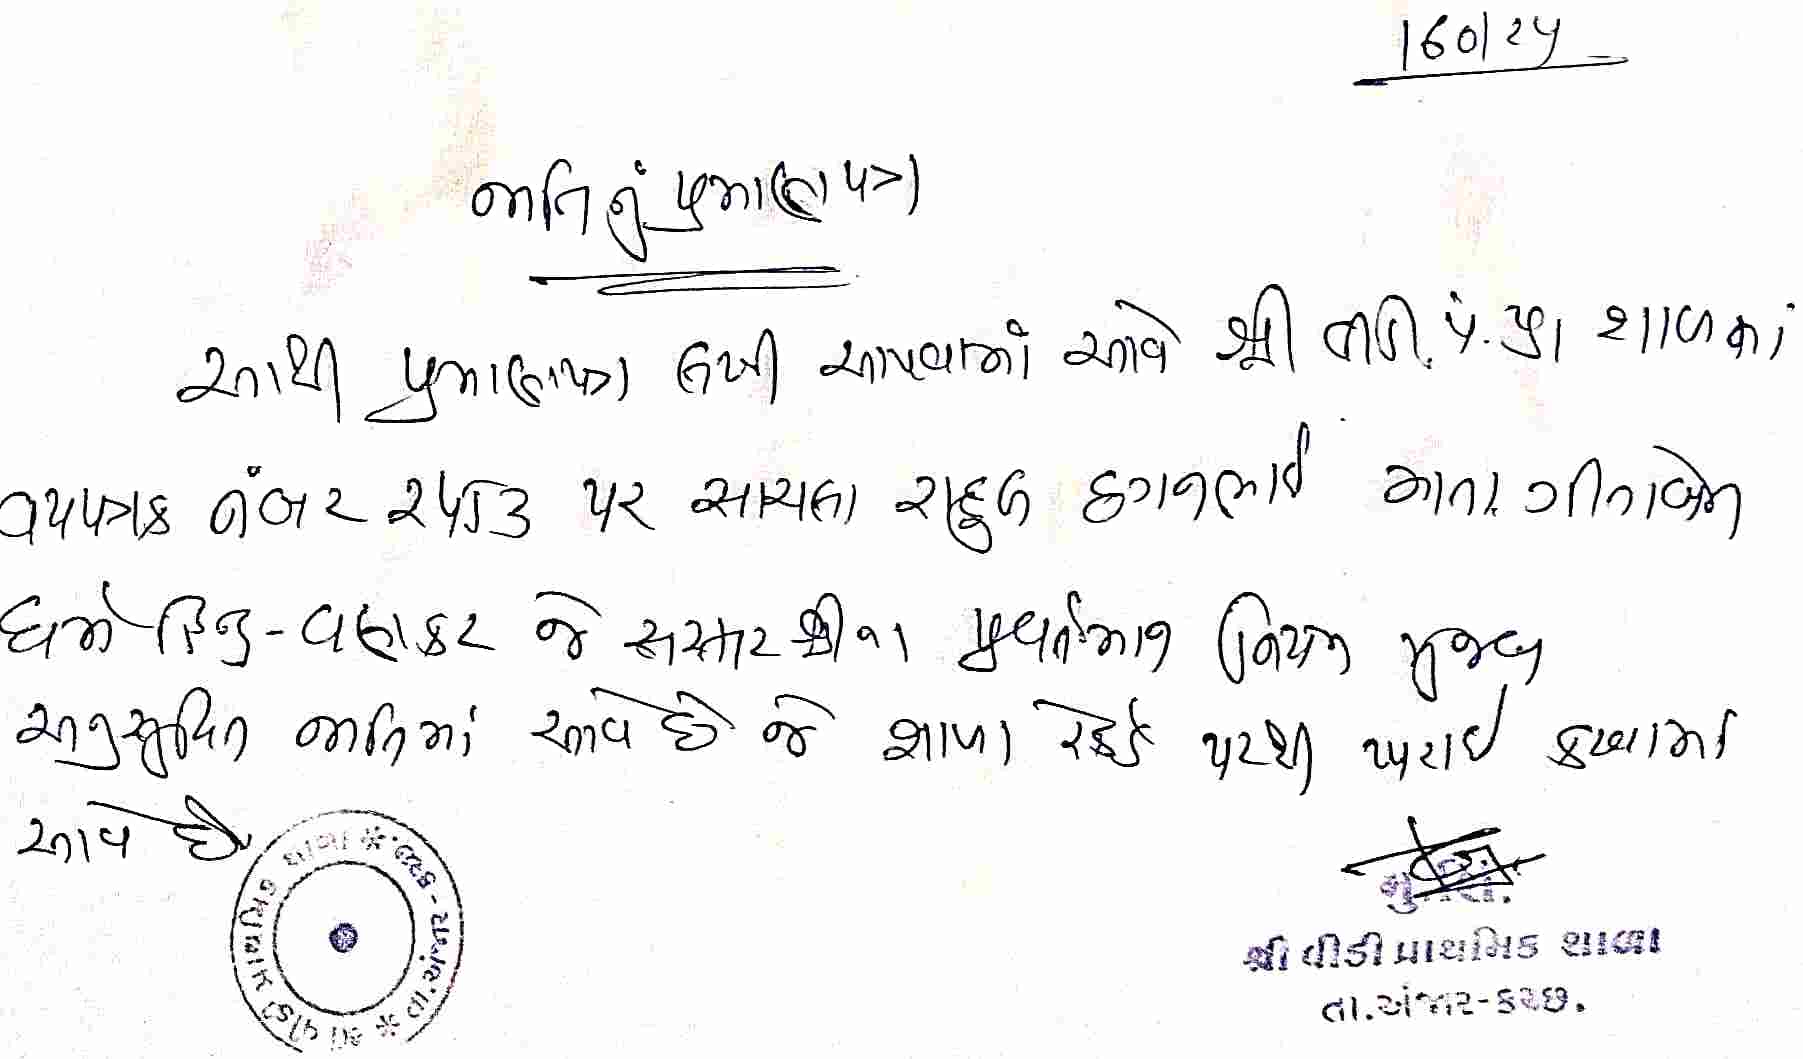 160/24
જાતિ નું પ્રમાણપત્ર
આથી પ્રમાણપત્ર લખી આપવામાં આવે શ્રી વીડી. પં. પ્રા શાળાના
વયપત્રક નંબર ૨૫૬૩ પર સાયલા રાહુલ છગનભાઈ માતા ગીતાબેન
ધર્મ હિન્દુ - વણકર જે સરકાર શ્રીના પ્રવર્તમાન નિયમ મુજબ
અનુસુચિત જાતિમાં આવે છે જે શાળા રેકર્ડ પરથી ખરાઈ કરવામાં
આવે છે
શ્રી વીડી પ્રાથમિક શાળા * તા. અંજાર - કચ્છ. *
શ્રી વીડી પ્રાથમિક શાળા
તા.અંજાર-કચ્છ.